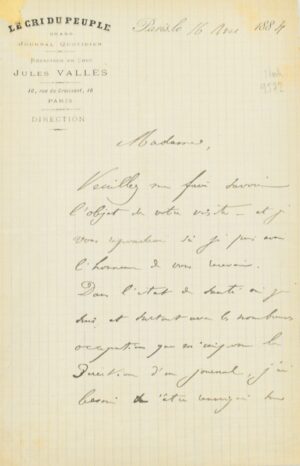 LE CRI DU PEUPLE
GRAND
JOURNAL QUOTIDIEN
RÉDACTEUR EN CHEF
JULES VALLÈS
16, rue du Croissant, 16
PARIS
DIRECTION
Paris, le 16 1884
Madame,
Veuillez me faire savoir
l'objet de votre visite – et je
vous répondrai si je puis avoir
l'honneur de vous recevoir.
Dans l'état de santé où je
suis, et surtout avec les nombreuses
occupations que m'impose la
Direction d'un journal, j'ai
besoin d'être renseigné